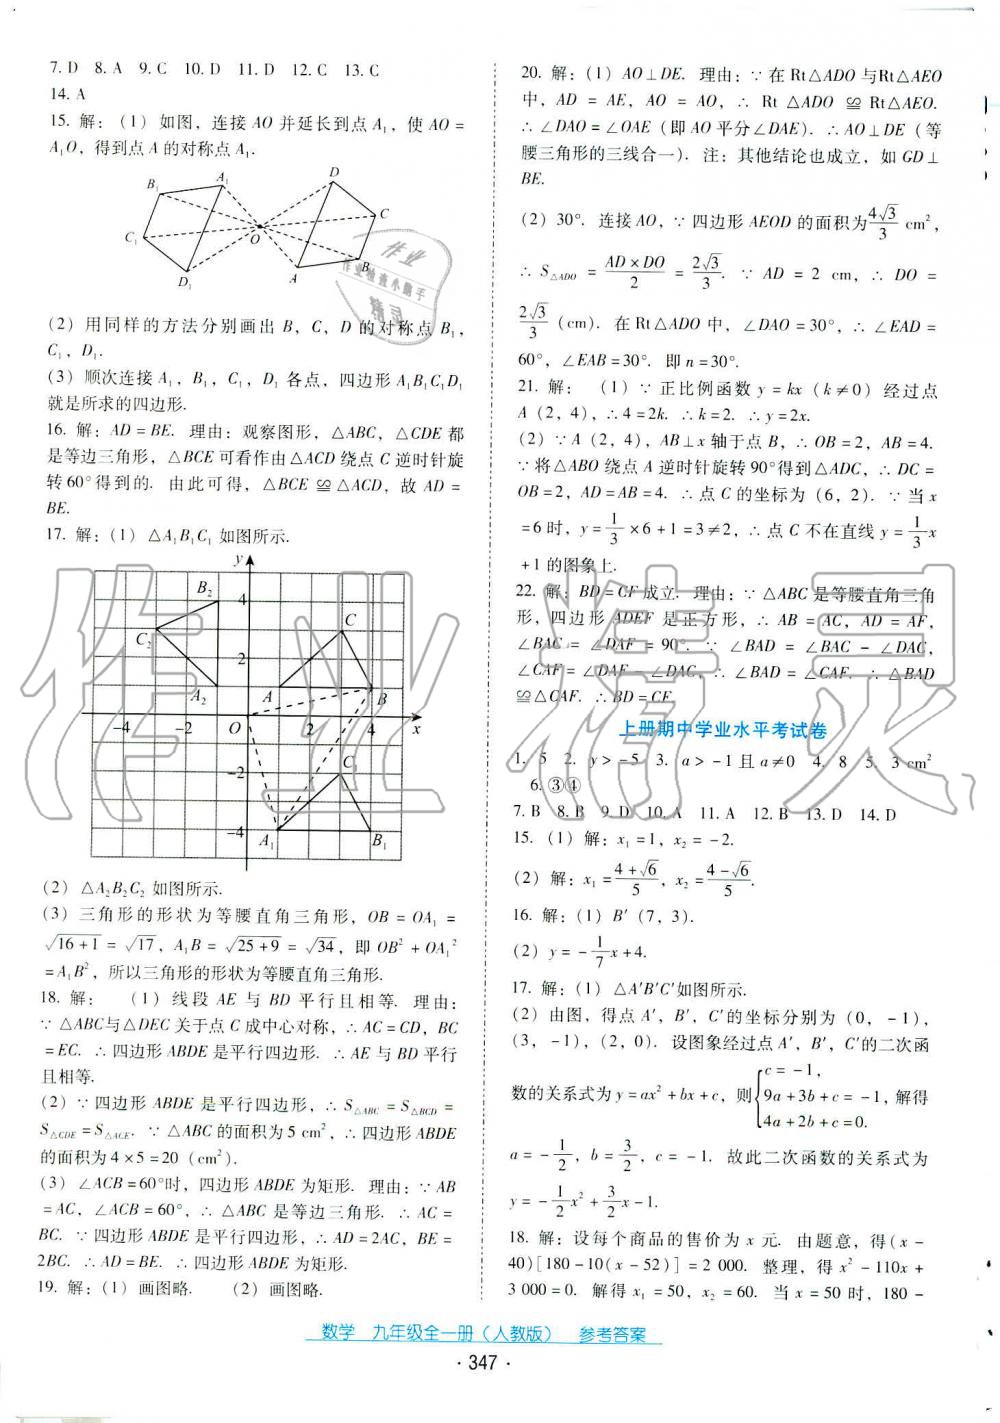 7. D　8. A　9. C　10. D　11. D　12. C　13. C
14. A
15. 解：（1）如图，连接 AO 并延长到点 A₁，使 AO =
A₁O，得到点 A 的对称点 A₁.
D
A₁
B₁
C
O
C₁
B
A
D₁
（2）用同样的方法分别画出 B，C，D 的对称点 B₁，
C₁，D₁.
（3）顺次连接 A₁，B₁，C₁，D₁ 各点，四边形 A₁B₁C₁D₁
就是所求的四边形.
16. 解：AD = BE. 理由：观察图形，△ABC，△CDE 都
是等边三角形，△BCE 可看作由△ACD 绕点 C 逆时针旋
转60°得到的. 由此可得，△BCE ≌△ACD，故 AD =
BE.
17. 解：（1）△A₁B₁C₁ 如图所示.
y
B₂
4
C
C₂
2
A₂
A
B
-4
-2
O
2
4
x
-2
C₁
-4
A₁
B₁
（2）△A₂B₂C₂ 如图所示.
（3）三角形的形状为等腰直角三角形，OB = OA₁ =
√(16+1) = √17，A₁B = √(25+9) = √34，即 OB² + OA₁²
= A₁B²，所以三角形的形状为等腰直角三角形.
18. 解：（1）线段 AE 与 BD 平行且相等. 理由：
∵ △ABC与△DEC 关于点 C 成中心对称，∴ AC = CD，BC
= EC. ∴ 四边形 ABDE 是平行四边形. ∴ AE 与 BD 平行
且相等.
（2）∵ 四边形 ABDE 是平行四边形，∴ S△ABC = S△BCD =
S△CDE = S△ACE. ∵ △ABC 的面积为 5 cm²，∴ 四边形 ABDE
的面积为 4 × 5 = 20（cm²）.
（3）∠ACB = 60°时，四边形 ABDE 为矩形. 理由：∵ AB
= AC，∠ACB = 60°，∴ △ABC 是等边三角形. ∴ AC =
BC. ∵ 四边形 ABDE 是平行四边形，∴ AD = 2AC，BE =
2BC. ∴ AD = BE. ∴ 四边形 ABDE 为矩形.
19. 解：（1）画图略.　（2）画图略.
20. 解：（1）AO⊥DE. 理由：∵ 在 Rt△ADO 与Rt△AEO
中，AD = AE，AO = AO，∴ Rt △ADO ≌ Rt△AEO.
∴ ∠DAO = ∠OAE（即 AO 平分∠DAE）. ∴ AO⊥DE（等
腰三角形的三线合一）. 注：其他结论也成立，如 GD⊥
BE.
（2）30°. 连接 AO，∵ 四边形 AEOD 的面积为 4√3/3 cm²，
∴ S△ADO = AD×DO/2 = 2√3/3. ∵ AD = 2 cm，∴ DO =
2√3/3（cm）. 在 Rt△ADO 中，∠DAO = 30°，∴ ∠EAD =
60°，∠EAB = 30°. 即 n = 30°.
21. 解：（1）∵ 正比例函数 y = kx（k≠0）经过点
A（2，4），∴ 4 = 2k. ∴ k = 2. ∴ y = 2x.
（2）∵ A（2，4），AB⊥x 轴于点 B，∴ OB = 2，AB = 4.
∵ 将△ABO 绕点 A 逆时针旋转 90°得到△ADC，∴ DC =
OB = 2，AD = AB = 4. ∴ 点 C 的坐标为（6，2）. ∵ 当 x
= 6 时，y = 1/3 × 6 + 1 = 3 ≠ 2，∴ 点 C 不在直线 y = 1/3 x
+ 1 的图象上.
22. 解：BD = CF 成立. 理由：∵ △ABC 是等腰直角三角
形，四边形 ADEF 是正方形，∴ AB = AC，AD = AF，
∠BAC = ∠DAF = 90°. ∵ ∠BAD = ∠BAC − ∠DAC，
∠CAF = ∠DAF − ∠DAC，∴ ∠BAD = ∠CAF. ∴ △BAD
≌△CAF. ∴ BD = CF.
上册期中学业水平考试卷
1. 5　2. y > −5　3. a > −1 且 a≠0　4. 8　5. 3 cm²
6. ③④
7. B　8. B　9. D　10. A　11. A　12. B　13. D　14. D
15.（1）解：x₁ = 1，x₂ = −2.
（2）解：x₁ = (4+√6)/5，x₂ = (4−√6)/5.
16. 解：（1）B′（7，3）.
（2）y = −1/7 x + 4.
17. 解：（1）△A′B′C′如图所示.
（2）由图，得点 A′，B′，C′的坐标分别为（0，−1），
（3，−1），（2，0）. 设图象经过点 A′，B′，C′的二次函
数的关系式为 y = ax² + bx + c，则 { c = −1，9a + 3b + c = −1，4a + 2b + c = 0. 解得
a = −1/2，b = 3/2，c = −1. 故此二次函数的关系式为
y = −1/2 x² + 3/2 x − 1.
18. 解：设每个商品的售价为 x 元. 由题意，得（x −
40）[180 − 10（x − 52）] = 2 000. 整理，得 x² − 110x +
3 000 = 0. 解得 x₁ = 50，x₂ = 60. 当 x = 50 时，180 −
数学　九年级全一册（人教版）　参考答案
· 347 ·
作业
作业检查小助手
精灵
作业精灵